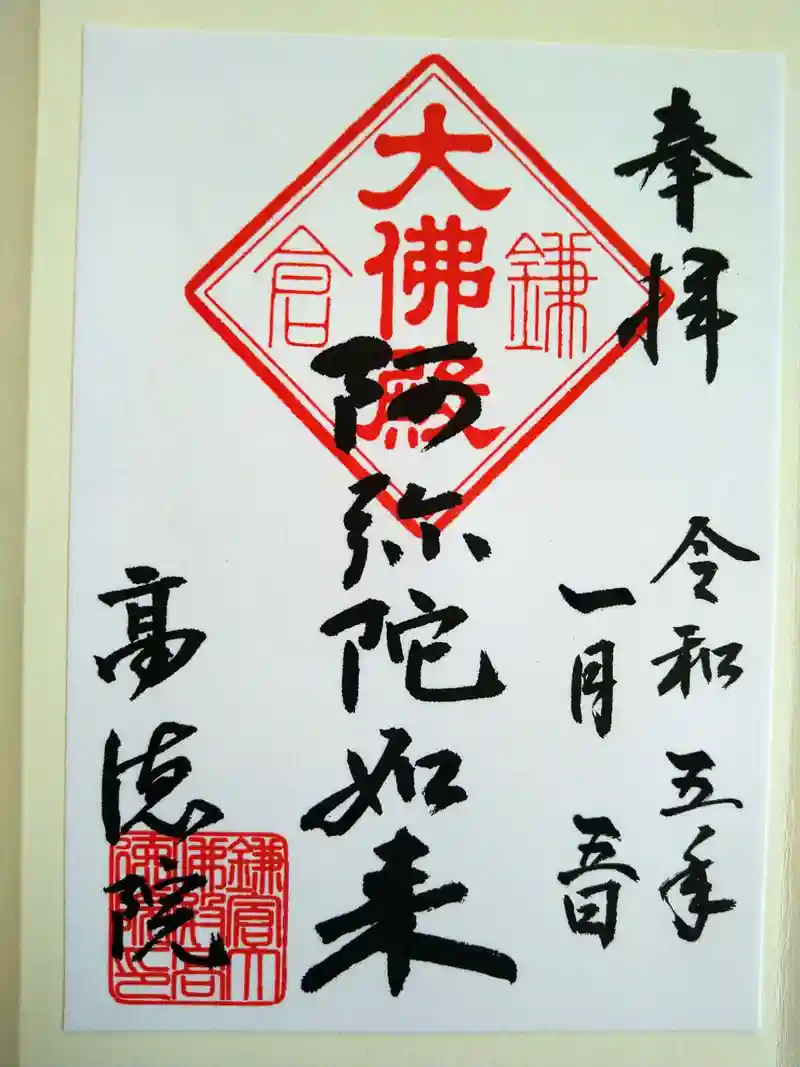 奉拝
令和五年
一月五日
大佛殿
鎌倉
阿弥陀如来
高徳院
鎌倉大
佛殿高
徳院印